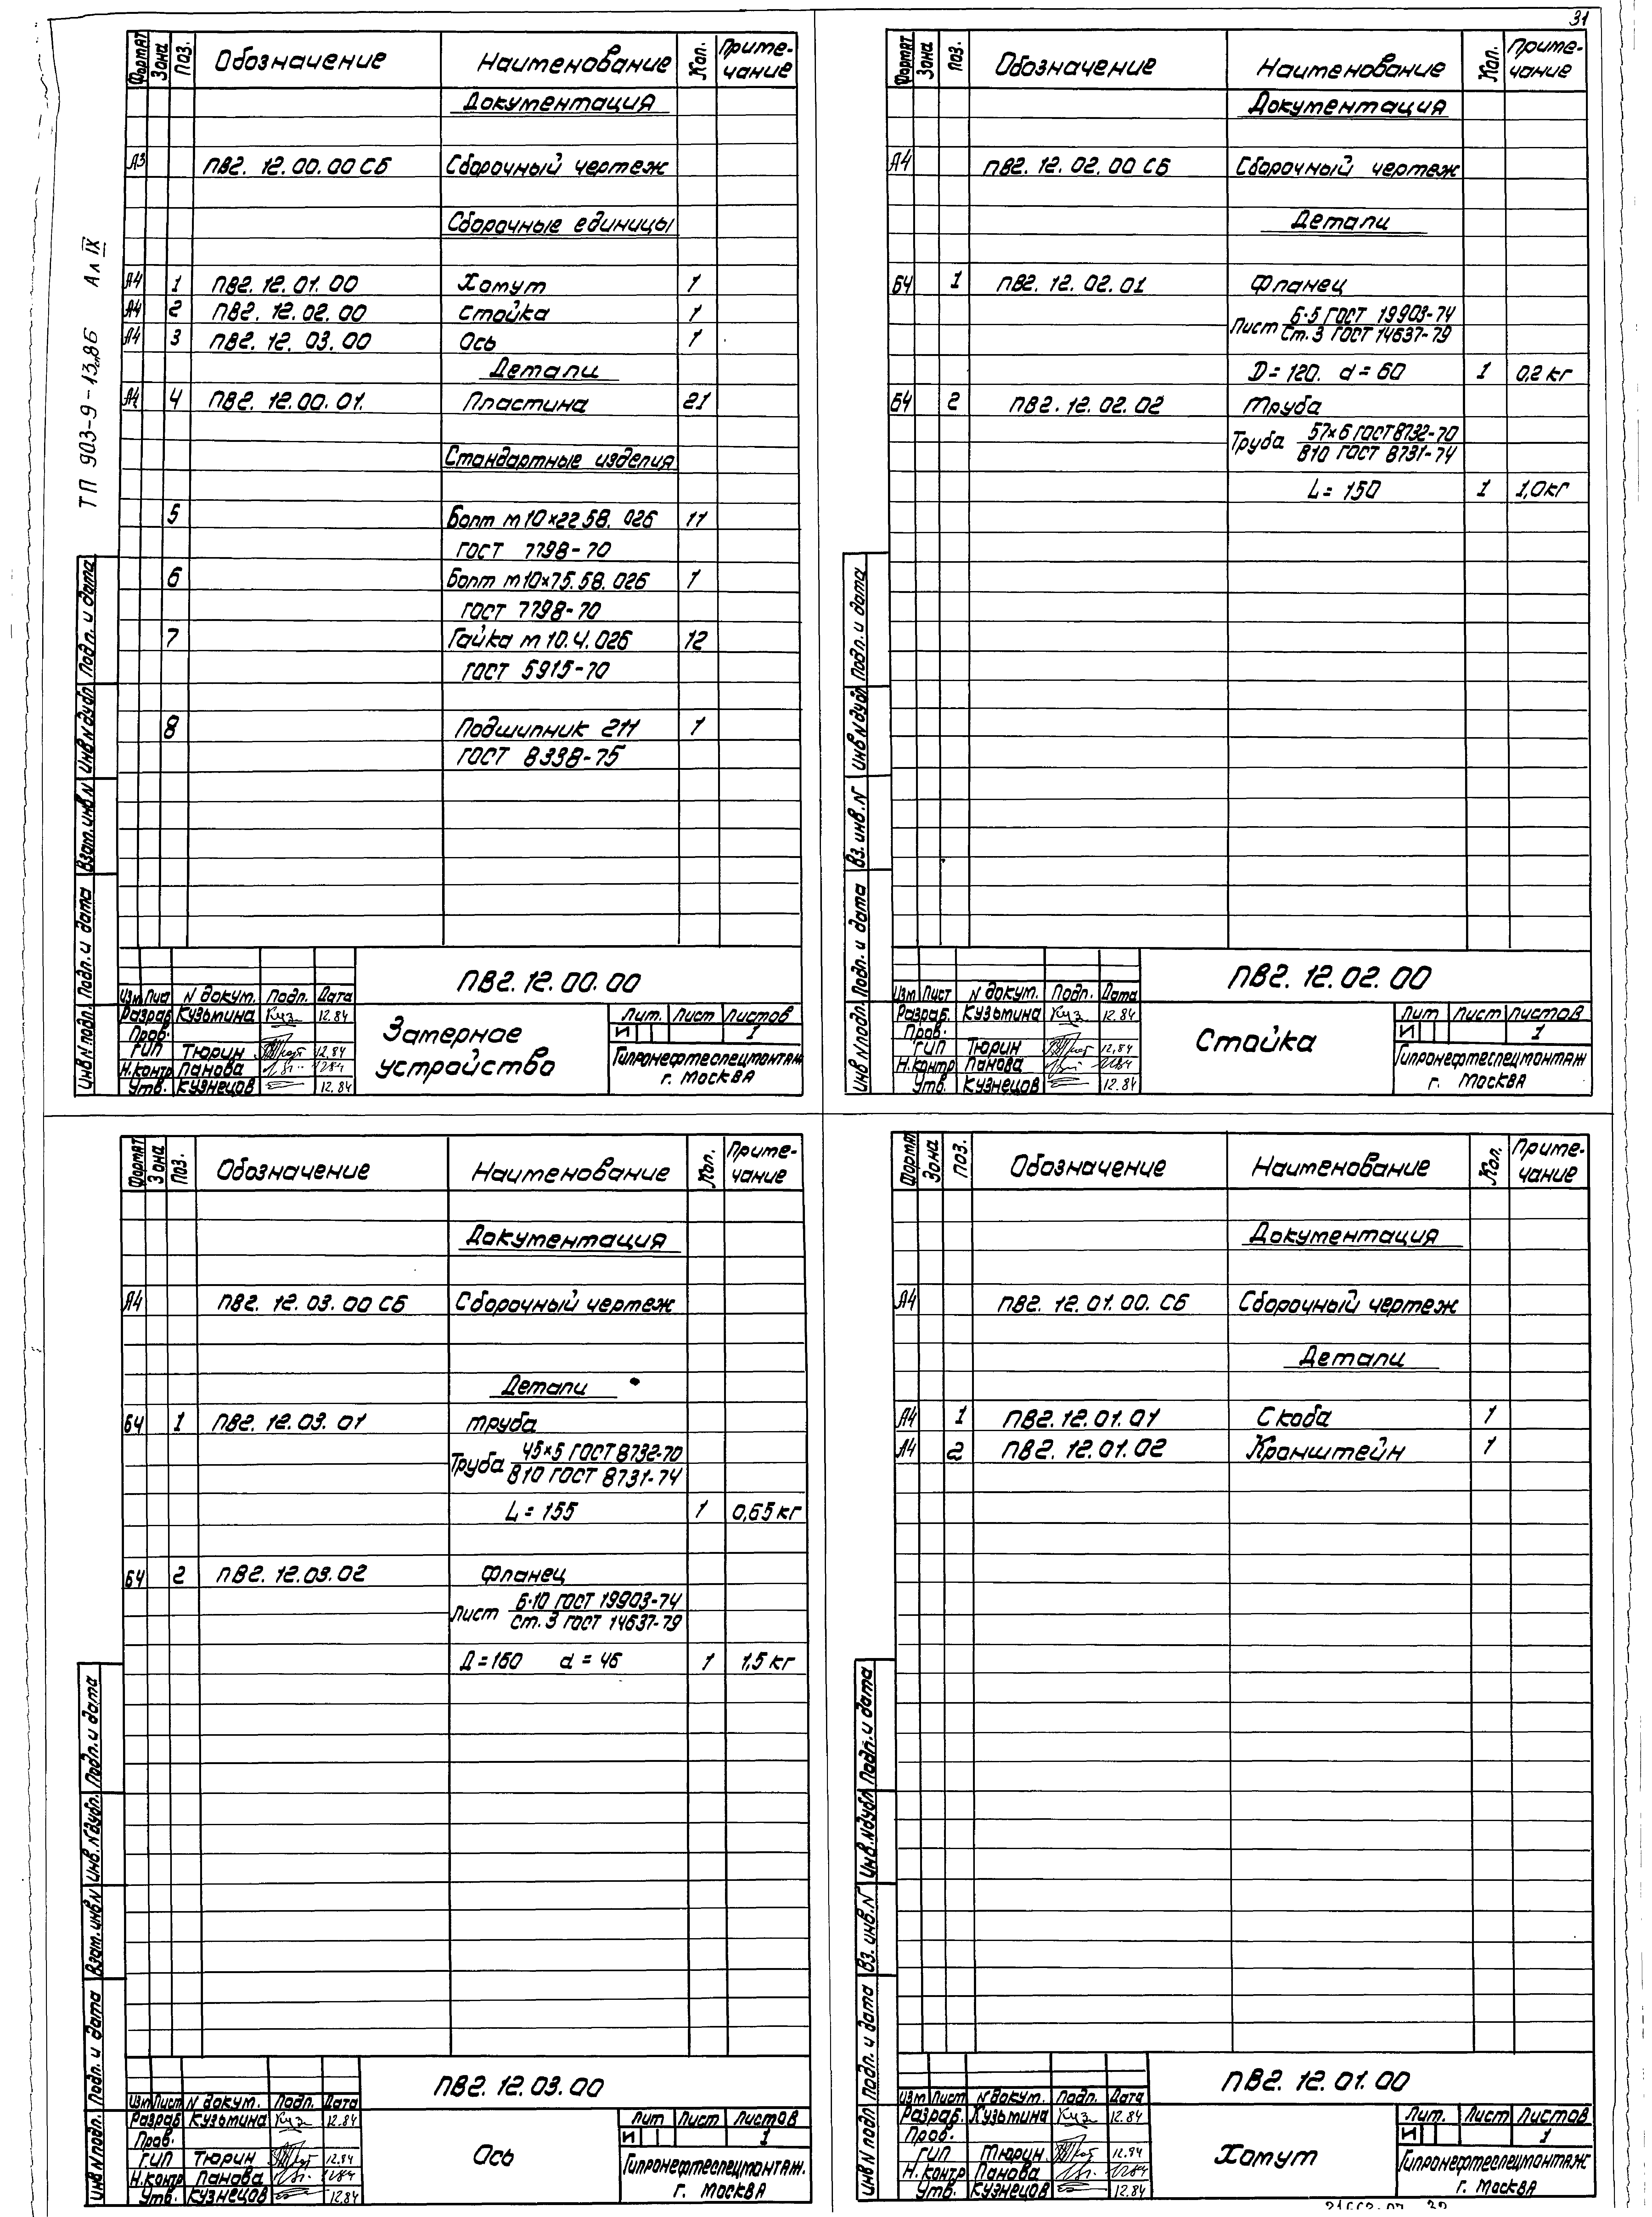 31
ТП 903-9-13.86 Ал IX
Формат Зона Поз. Обозначение Наименование Кол. Приме-
чание
Документация
А3 ПВ2. 12. 00. 00 СБ Сборочный чертеж
Сборочные единицы
А4 1 ПВ2. 12. 01. 00 Хомут 1
А4 2 ПВ2. 12. 02. 00 Стойка 1
А4 3 ПВ2. 12. 03. 00 Ось 1
Детали
А4 4 ПВ2. 12. 00. 01. Пластина 21
Стандартные изделия
5 Болт м10×22.58. 026 11
ГОСТ 7798-70
6 Болт м10×75.58. 026 1
ГОСТ 7798-70
7 Гайка м 10.4. 026 12
ГОСТ 5915-70
8 Подшипник 211 1
ГОСТ 8338-75
Инв N подл. Подп. и дата Взам. инв N Инв N дубл Подп. и дата
ПВ2. 12. 00. 00
Изм Лист N докум. Подп. Дата
Разраб Кузьмина Куз 12.84
Пров.
ГИП Тюрин 12.84
Н.контр Панова 12.84
Утв. Кузнецов 12.84
Затерное
устройство
Лит. Лист Листов
И 1
Гипронефтеспецмонтаж
г. Москва
Формат Зона Поз. Обозначение Наименование Кол. Приме-
чание
Документация
А4 ПВ2. 12. 02. 00 СБ Сборочный чертеж
Детали
Б4 1 ПВ2. 12. 02. 01 Фланец
Лист Б·5 ГОСТ 19903-74
Ст. 3 ГОСТ 14637-79
D = 120. d = 60 1 0,2 кг
Б4 2 ПВ2. 12. 02. 02 Труба
Труба 57×6 ГОСТ 8732-70
В10 ГОСТ 8731-74
L = 150 1 1,0 кг
Инв N подл. Подп. и дата Вз. инв. N Инв N дубл Подп. и дата
ПВ2. 12. 02. 00
Изм Лист N докум. Подп. Дата
Разраб. Кузьмина Куз 12.84
Пров.
ГИП Тюрин 12.84
Н.контр Панова 12.84
Утв. Кузнецов 12.84
Стойка
Лит Лист Листов
И 1
Гипронефтеспецмонтаж
г. Москва
Формат Зона Поз. Обозначение Наименование Кол. Приме-
чание
Документация
А4 ПВ2. 12. 03. 00 СБ Сборочный чертеж
Детали
Б4 1 ПВ2. 12. 03. 01 Труба
Труба 45×5 ГОСТ 8732-70
В10 ГОСТ 8731-74
L = 155 1 0,65 кг
Б4 2 ПВ2. 12.03. 02 Фланец
Лист Б·10 ГОСТ 19903-74
Ст. 3 ГОСТ 14637-79
Д = 160 d = 46 1 1,5 кг
Инв N подл. Подп. и дата Взам. инв N Инв. N дубл. Подп. и дата
ПВ2. 12. 03. 00
Изм Лист N докум. Подп. Дата
Разраб Кузьмина Куз 12.84
Пров.
ГИП Тюрин 12.84
Н.контр Панова 12.84
Утв. Кузнецов 12.84
Ось
Лит Лист Листов
И 1
Гипронефтеспецмонтаж.
г. Москва
Формат Зона Поз. Обозначение Наименование Кол. Приме-
чание
Документация
А4 ПВ2. 12. 01. 00. СБ Сборочный чертеж
Детали
А4 1 ПВ2. 12. 01. 01 Скоба 1
А4 2 ПВ2. 12. 01. 02 Кронштейн 1
Инв N подл Подп. и дата Вз. инв. N Инв. N дубл Подп. и дата
ПВ2. 12. 01. 00
Изм Лист N докум. Подп. Дата
Разраб. Кузьмина Куз 12.84
Пров.
ГИП Тюрин 12.84
Н.контр Панова 12.84
Утв. Кузнецов 12.84
Хомут
Лит. Лист Листов
И 1
Гипронефтеспецмонтаж
г. Москва